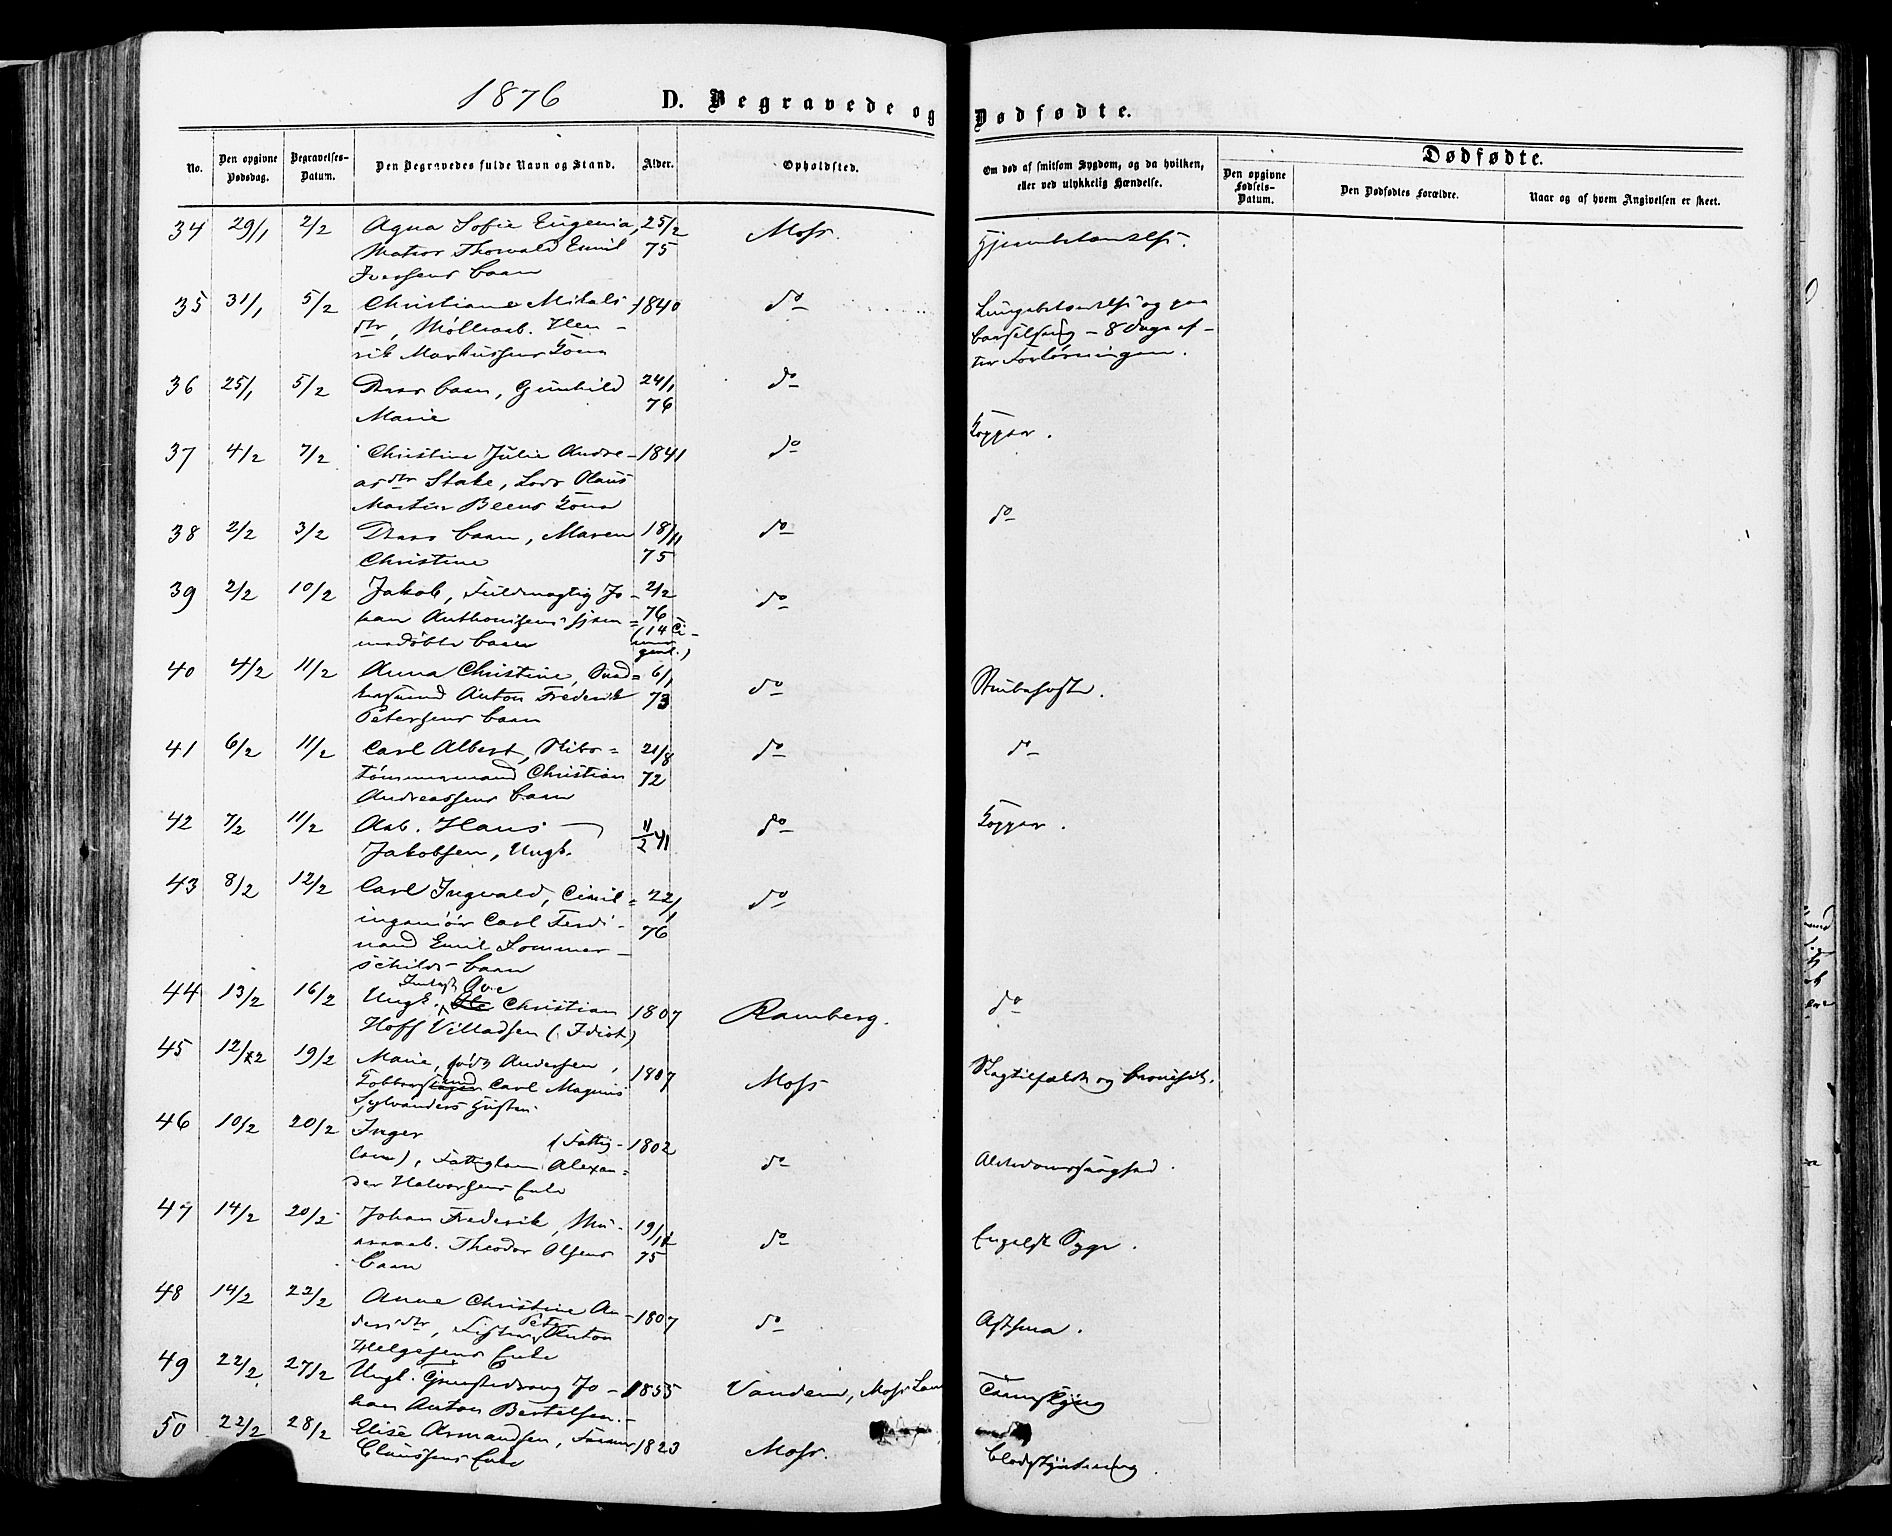 1876 D. Begravede og Dødfødte.
No. Den opgivne Dødsdag. Begravelses-Datum. Den Begravedes fulde Navn og Stand. Alder. Opholdsted. Om død af smitsom Sygdom, og da hvilken, eller ved ulykkelig Hændelse. Dødfødte.
Den opgivne Fødsels-Datum. Den Dødfødtes Forældre. Naar og af hvem Angivelsen er skeet.
34 29/1 2/2 Agna Sofie Eugenia, 25/2 Moss.
Matros Thorwald Emil 75
Iversens barn
35 31/1 5/2 Christiane Mikals- 1840 do Lungebetændelse og paa
dtr, Møllearb. Hen- barselseng - 8 Dage ef-
rik Markussens Kona ter Forløsningen.
36 25/1 5/2 Dens barn, Gunhild 24/1 do
Marie 76
Kopper.
37 4/2 7/2 Christine Julie Andre- 1841 do
asdtr Stake, Lods Olaus
Martin Beens Kona do
38 2/2 3/2 Dens barn, Maren 18/11 do
Christine 75
39 2/2 10/2 Jakob, Fuldmægtig Jo- 2/2 do
han Anthonisens hjem- 76
medøbte barn (14
40 4/2 11/2 Anna Christine, 6/1 do Strubehoste.
Anton Frederik 73
Petersens barn
41 6/2 11/2 Carl Albert, Skibs- 21/8 do do
tømmermand Christian 72
Andreassens barn
42 7/2 11/2 Arb. Hans 11/2 41 do Kopper.
Jakobsen, Ungk.
43 8/2 12/2 Carl Ingvald, Civil- 22/1 do
ingeniör Carl Ferdi- 76
nand Emil Sommer-
schilds barn
44 13/2 16/2 Ungk. Ove Christian 1807 Ramberg. do
Hoff Villadsen (Idiot)
45 12/2 19/2 Marie, født Andersen, 1807 Moss
Carl Magnus
Sylvanders Hustru
46 10/2 20/2 Inger (Fattig- 1802 do
lem), Fattiglem Alexan- Alderdomssvaghed.
der Halvorsens Enke
47 14/2 20/2 Johan Frederik, Mu- 19/12 do Engelsk Syge.
rerarb. Theodor Olsens 75
barn
48 14/2 22/2 Anne Christine An- 1807 do Asthma.
dersdtr, Peter Anton
Helgesens Enke
49 22/2 27/2 Ungk. Jo- 1855 Vandem, Moss Land
han Anton Bertelsen.
50 22/2 28/2 Elise Armandsen, 1823 Moss. Blodstyrtning.
Claussens Enke